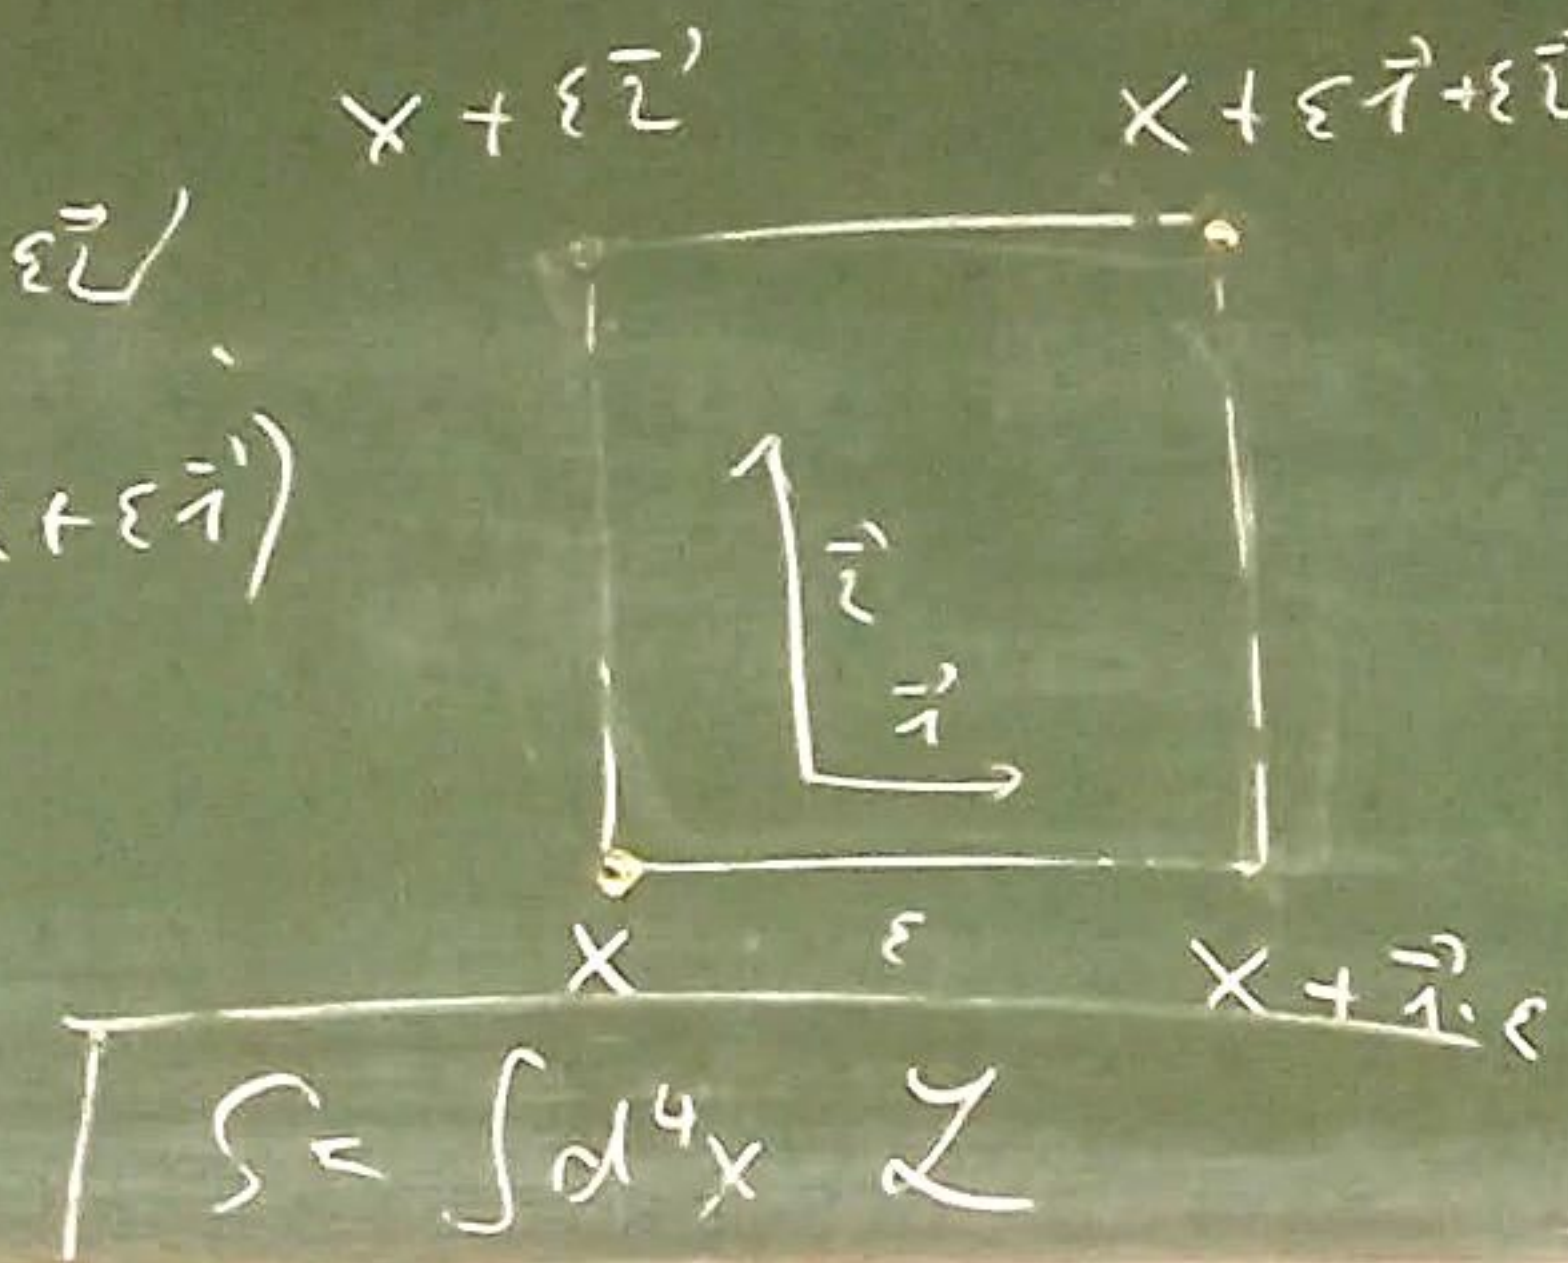 x + ε2⃗
x + ε1⃗ + ε2⃗
ε2⃗)
+ ε1⃗)
2⃗
1⃗
x
ε
x + 1⃗·ε
S = ∫ d⁴x ℒ